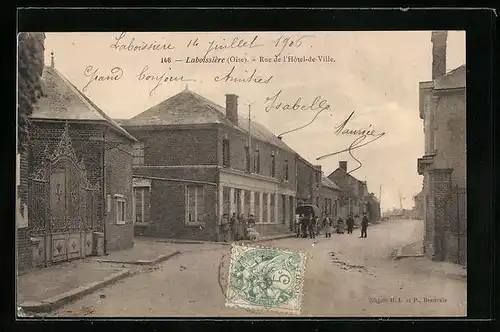 Laboissière 14 Juillet 1906
146 — Laboissière (Oise). — Rue de l'Hôtel-de-Ville.
Grand bonjour Amitiés
Isabelle
Maurice
5